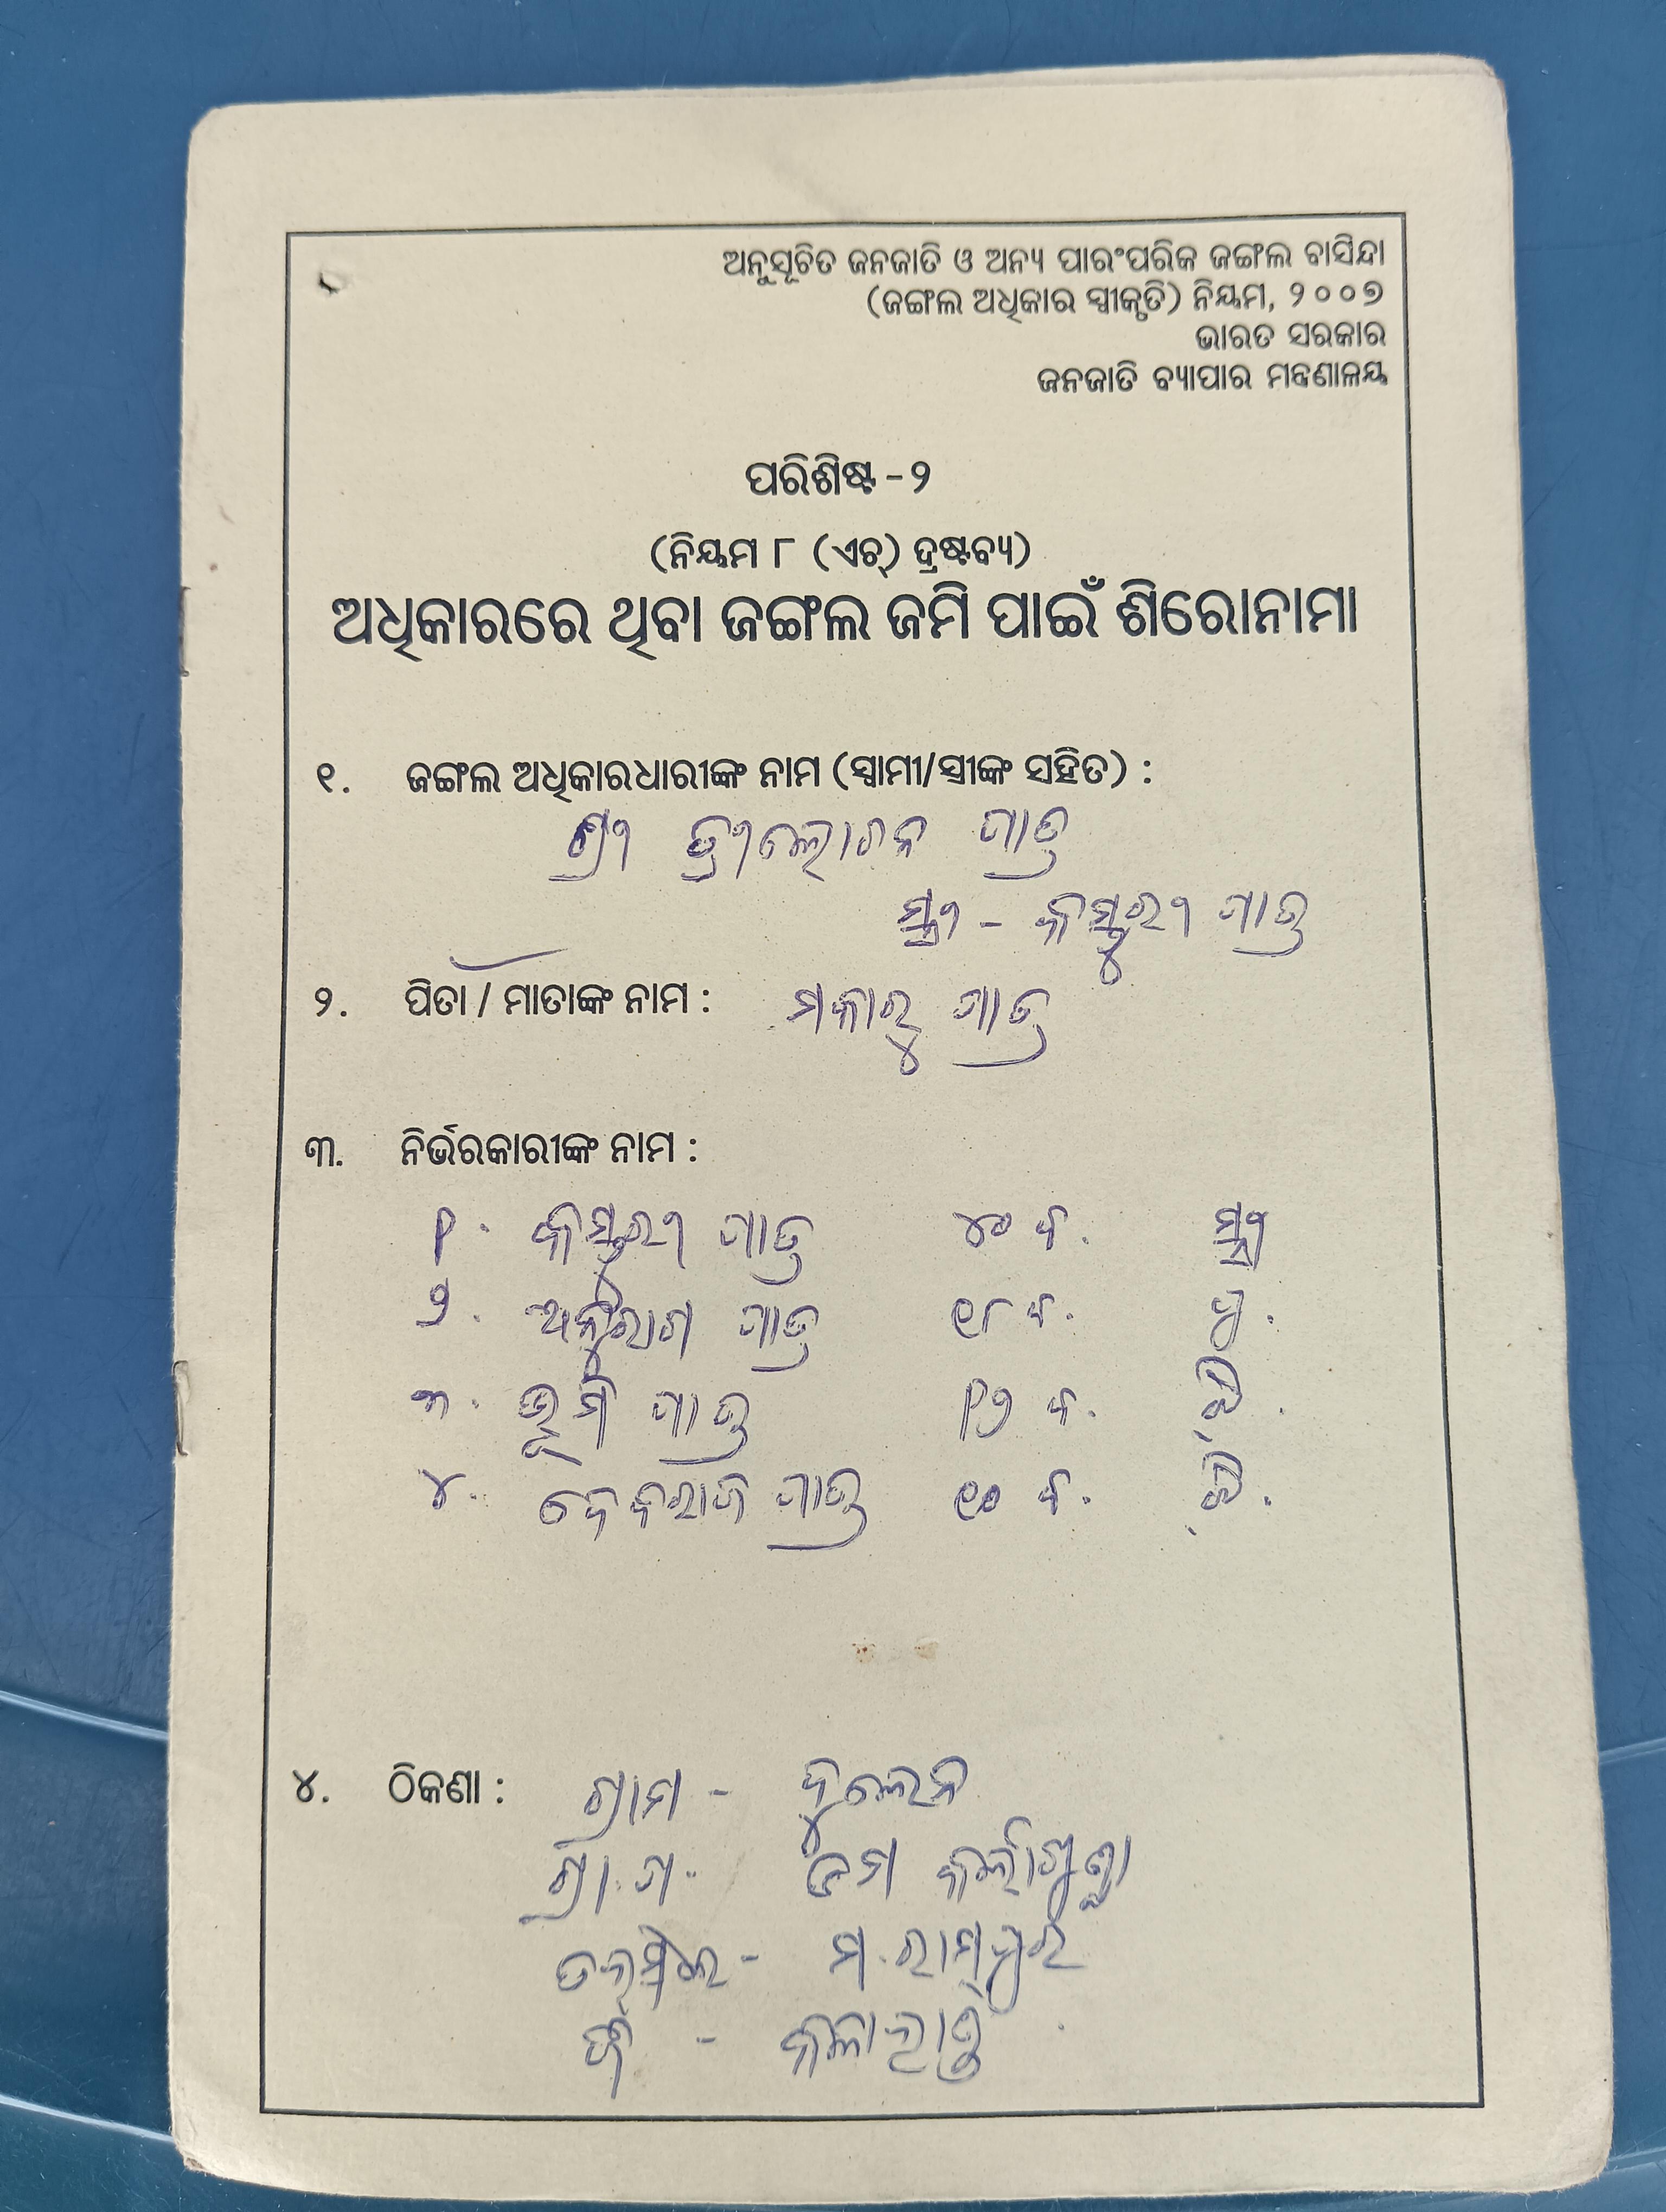 ଅନୁସୂଚିତ ଜନଜାତି ଓ ଅନ୍ୟ ପାରଂପରିକ ଜଙ୍ଗଲ ବାସିନ୍ଦା
(ଜଙ୍ଗଲ ଅଧିକାର ସ୍ୱୀକୃତି) ନିୟମ, ୨୦୦୭
ଭାରତ ସରକାର
ଜନଜାତି ବ୍ୟାପାର ମନ୍ତ୍ରଣାଳୟ
ପରିଶିଷ୍ଟ - ୨
(ନିୟମ ୮ (ଏଚ୍) ଦ୍ରଷ୍ଟବ୍ୟ)
ଅଧିକାରରେ ଥିବା ଜଙ୍ଗଲ ଜମି ପାଇଁ ଶିରୋନାମା
୧. ଜଙ୍ଗଲ ଅଧିକାରଧାରୀଙ୍କ ନାମ (ସ୍ୱାମୀ/ସ୍ତ୍ରୀଙ୍କ ସହିତ) :
ଶ୍ରୀ ତ୍ରୀଲୋଚନ
ସ୍ତ୍ରୀ - କସ୍ତୁରୀ
୨. ପିତା / ମାତାଙ୍କ ନାମ : ମକାରୁ
୩. ନିର୍ଭରକାରୀଙ୍କ ନାମ :
୧. କସ୍ତୁରୀ ୪୦ ବ. ସ୍ତ୍ରୀ
୨. ୧୮ ବ. ପୁ.
୩. ଭୂମି ୧୨ ବ. ଝି.
୪. ଦେବରାଜ ୧୦ ବ.
୪. ଠିକଣା : ଗ୍ରାମ - ଦୁଲେନ
ଗ୍ରା.ପ.
ତହସିଲ - ମ.ରାମପୁର
ଜି - କଳାହାଣ୍ଡି